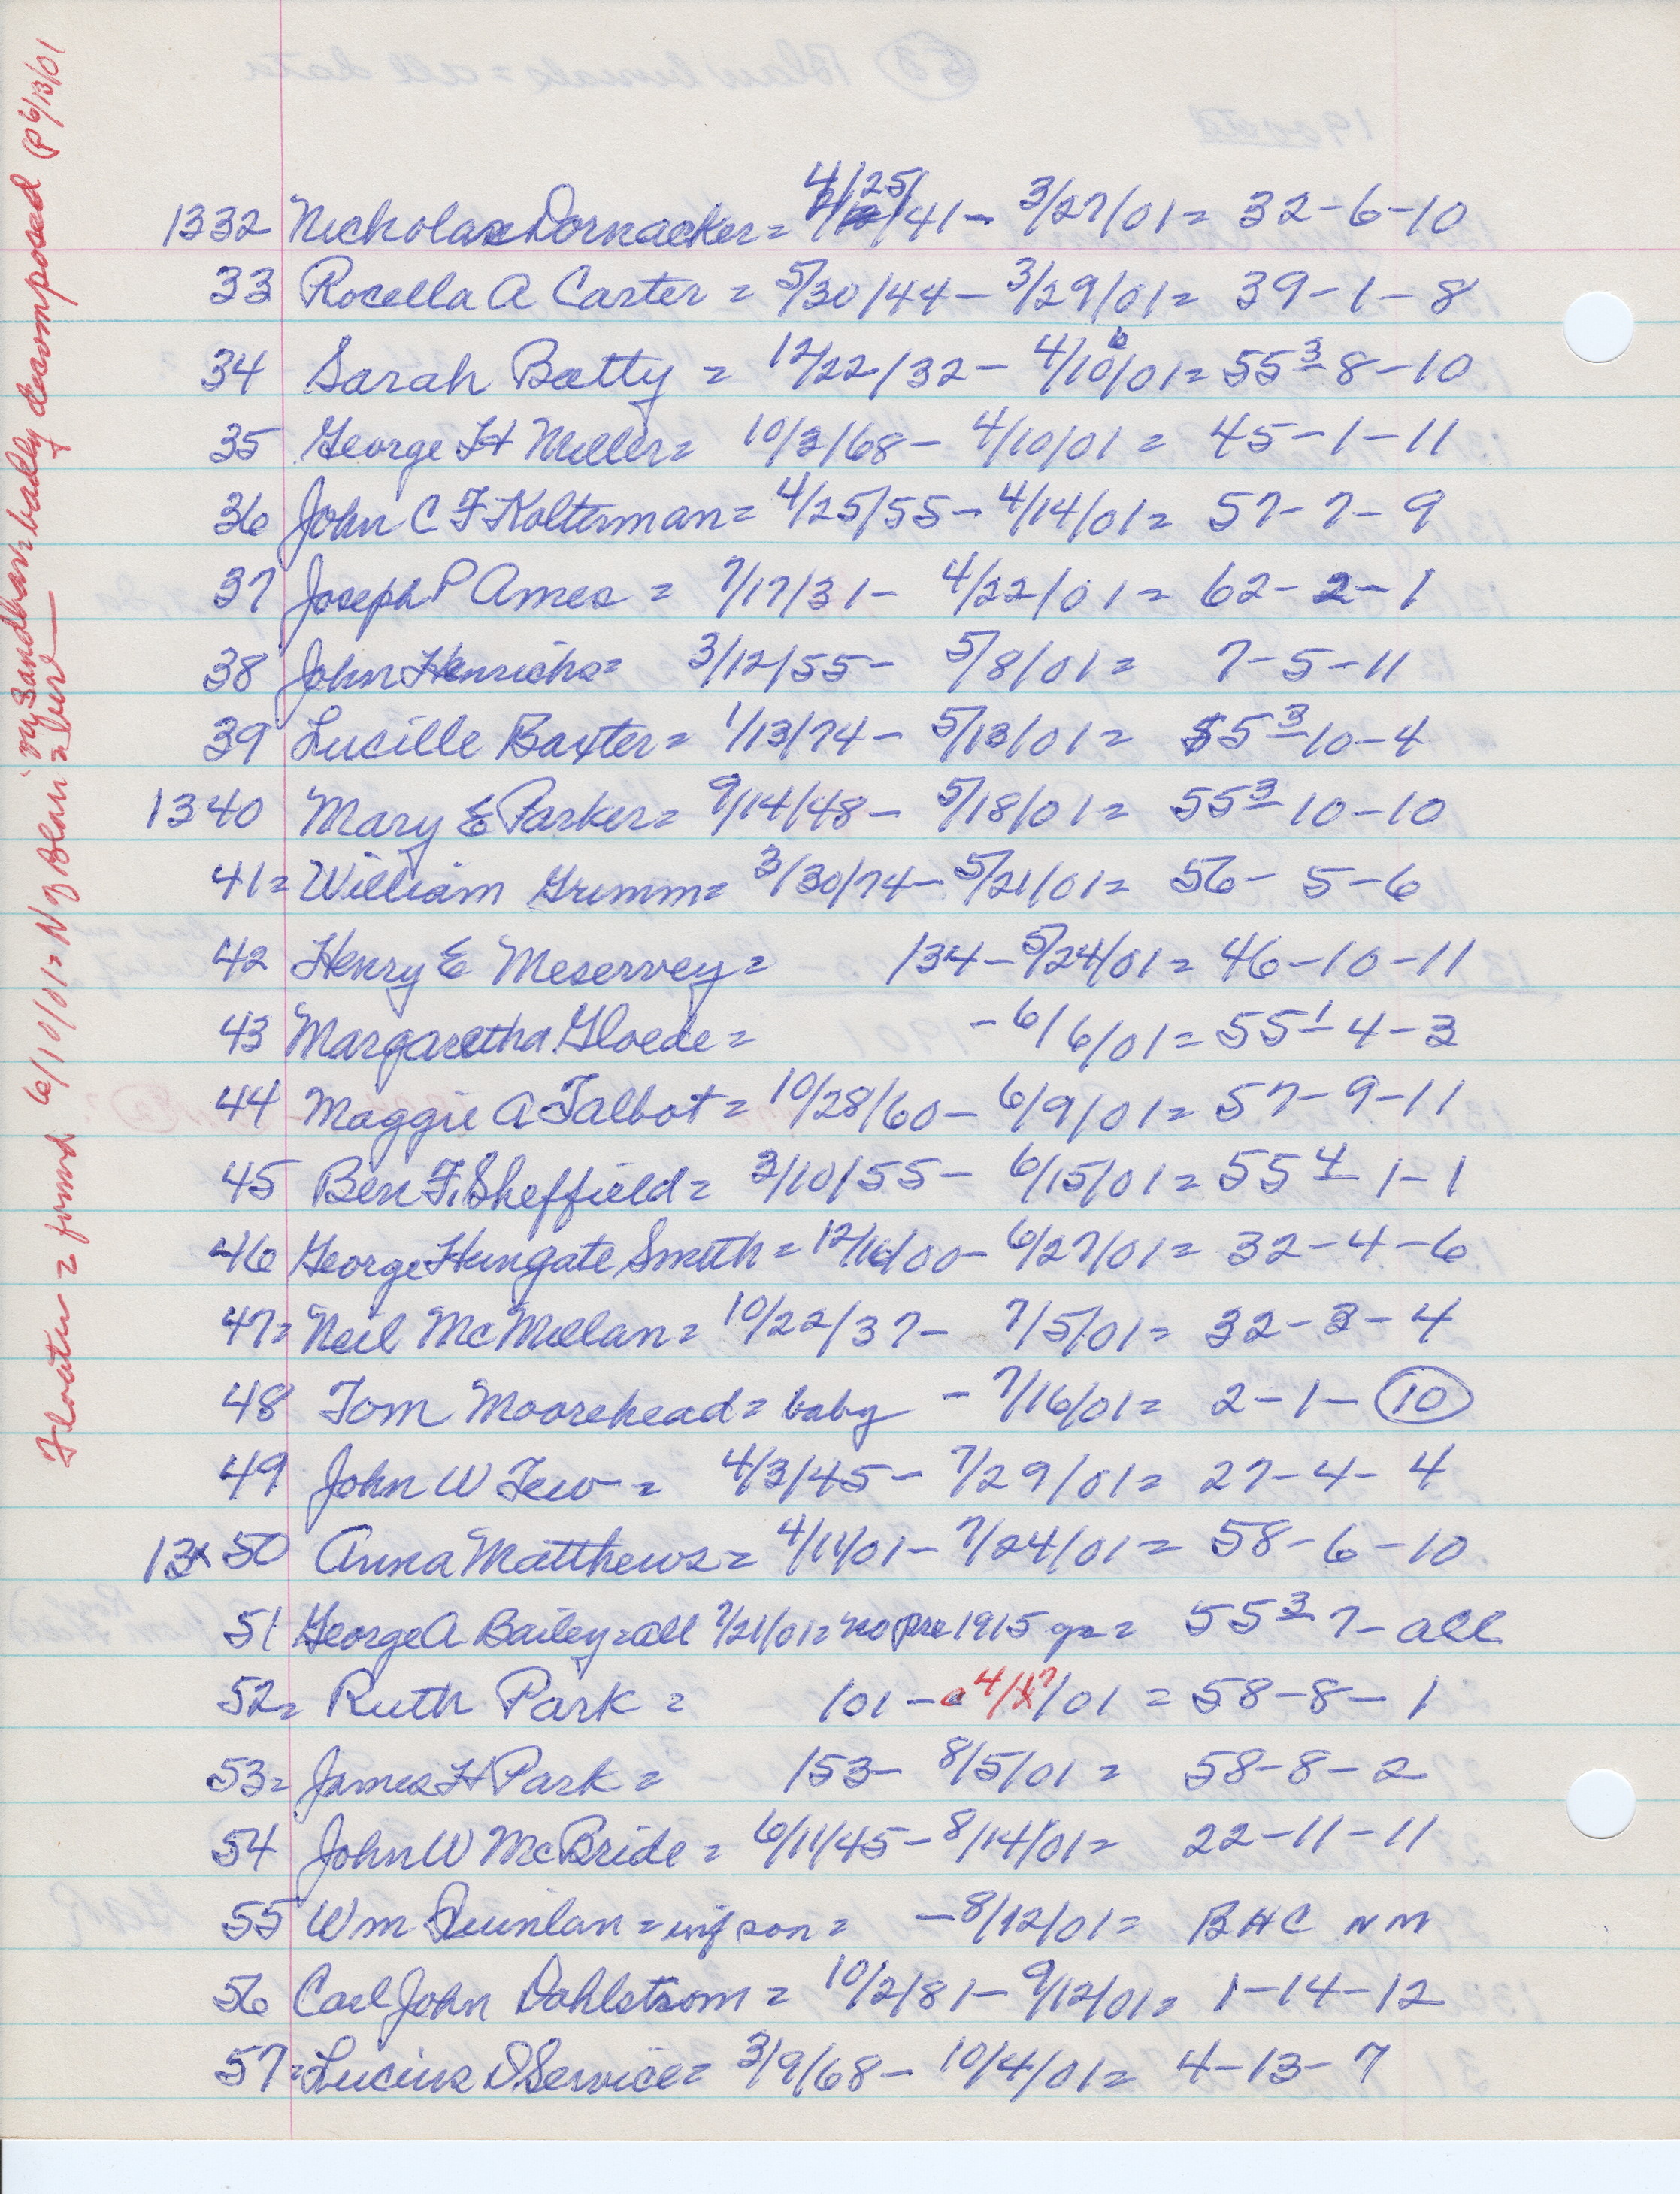 1332 Nicholas Dornacker = 4/25/41 - 3/27/01 = 32-6-10
33 Rocella A Carter = 5/30/44 - 3/29/01 = 39-1-8
34 Sarah Batty = 12/22/32 - 4/10/01 = 55 3 - 8-10
35 George H Miller = 10/3/68 - 4/10/01 = 45-1-11
36 John C F Kolterman = 4/25/55 - 4/14/01 = 57-7-9
37 Joseph P Ames = 7/17/31 - 4/22/01 = 62-2-1
38 John Henrichs = 3/12/55 - 5/8/01 = 7-5-11
39 Lucille Baxter = 1/13/74 - 5/13/01 = 55 3 - 10-4
1340 Mary E Parker = 9/14/48 - 5/18/01 = 55 3 - 10-10
41 = William Grimm = 3/30/74 - 5/21/01 = 56-5-6
42 Henry E Meservey = 134 - 5/24/01 = 46-10-11
43 Margaretha Gloede = - 6/6/01 = 55 1 - 4-3
44 Maggie A Talbot = 10/28/60 - 6/9/01 = 57-9-11
45 Ben F. Sheffield = 3/10/55 - 6/15/01 = 55 4 - 1-1
46 George Hungate Smith = 12/16/00 - 6/27/01 = 32-4-6
47 = Neil McMillan = 10/22/37 - 7/5/01 = 32-3-4
48 Tom Moorehead = baby - 7/16/01 = 2-1-10
49 John W Tew = 4/3/45 - 7/29/01 = 27-4-4
13 x 50 Anna Matthews = 4/11/01 - 7/24/01 = 58-6-10
51 George A Bailey = all 7/21/01 = no pre 1915 gs = 55 3 - 7 - all
52 = Ruth Park = 101 - 4/ /01 = 58-8-1
53 = James H Park = 153 - 8/5/01 = 58-8-2
54 John W McBride = 6/11/45 - 8/14/01 = 22-11-11
55 Wm Quinlan = inf son = - 8/12/01 = BHC NM
56 Carl John Dahlstrom = 10/2/81 - 9/12/01 = 1-14-12
57 = Lucius D Service = 3/9/68 - 10/4/01 = 4-13-7
Floater = found 6/10/01 = N of Bern = my Sandbar badly decomposed (P 6/13/01